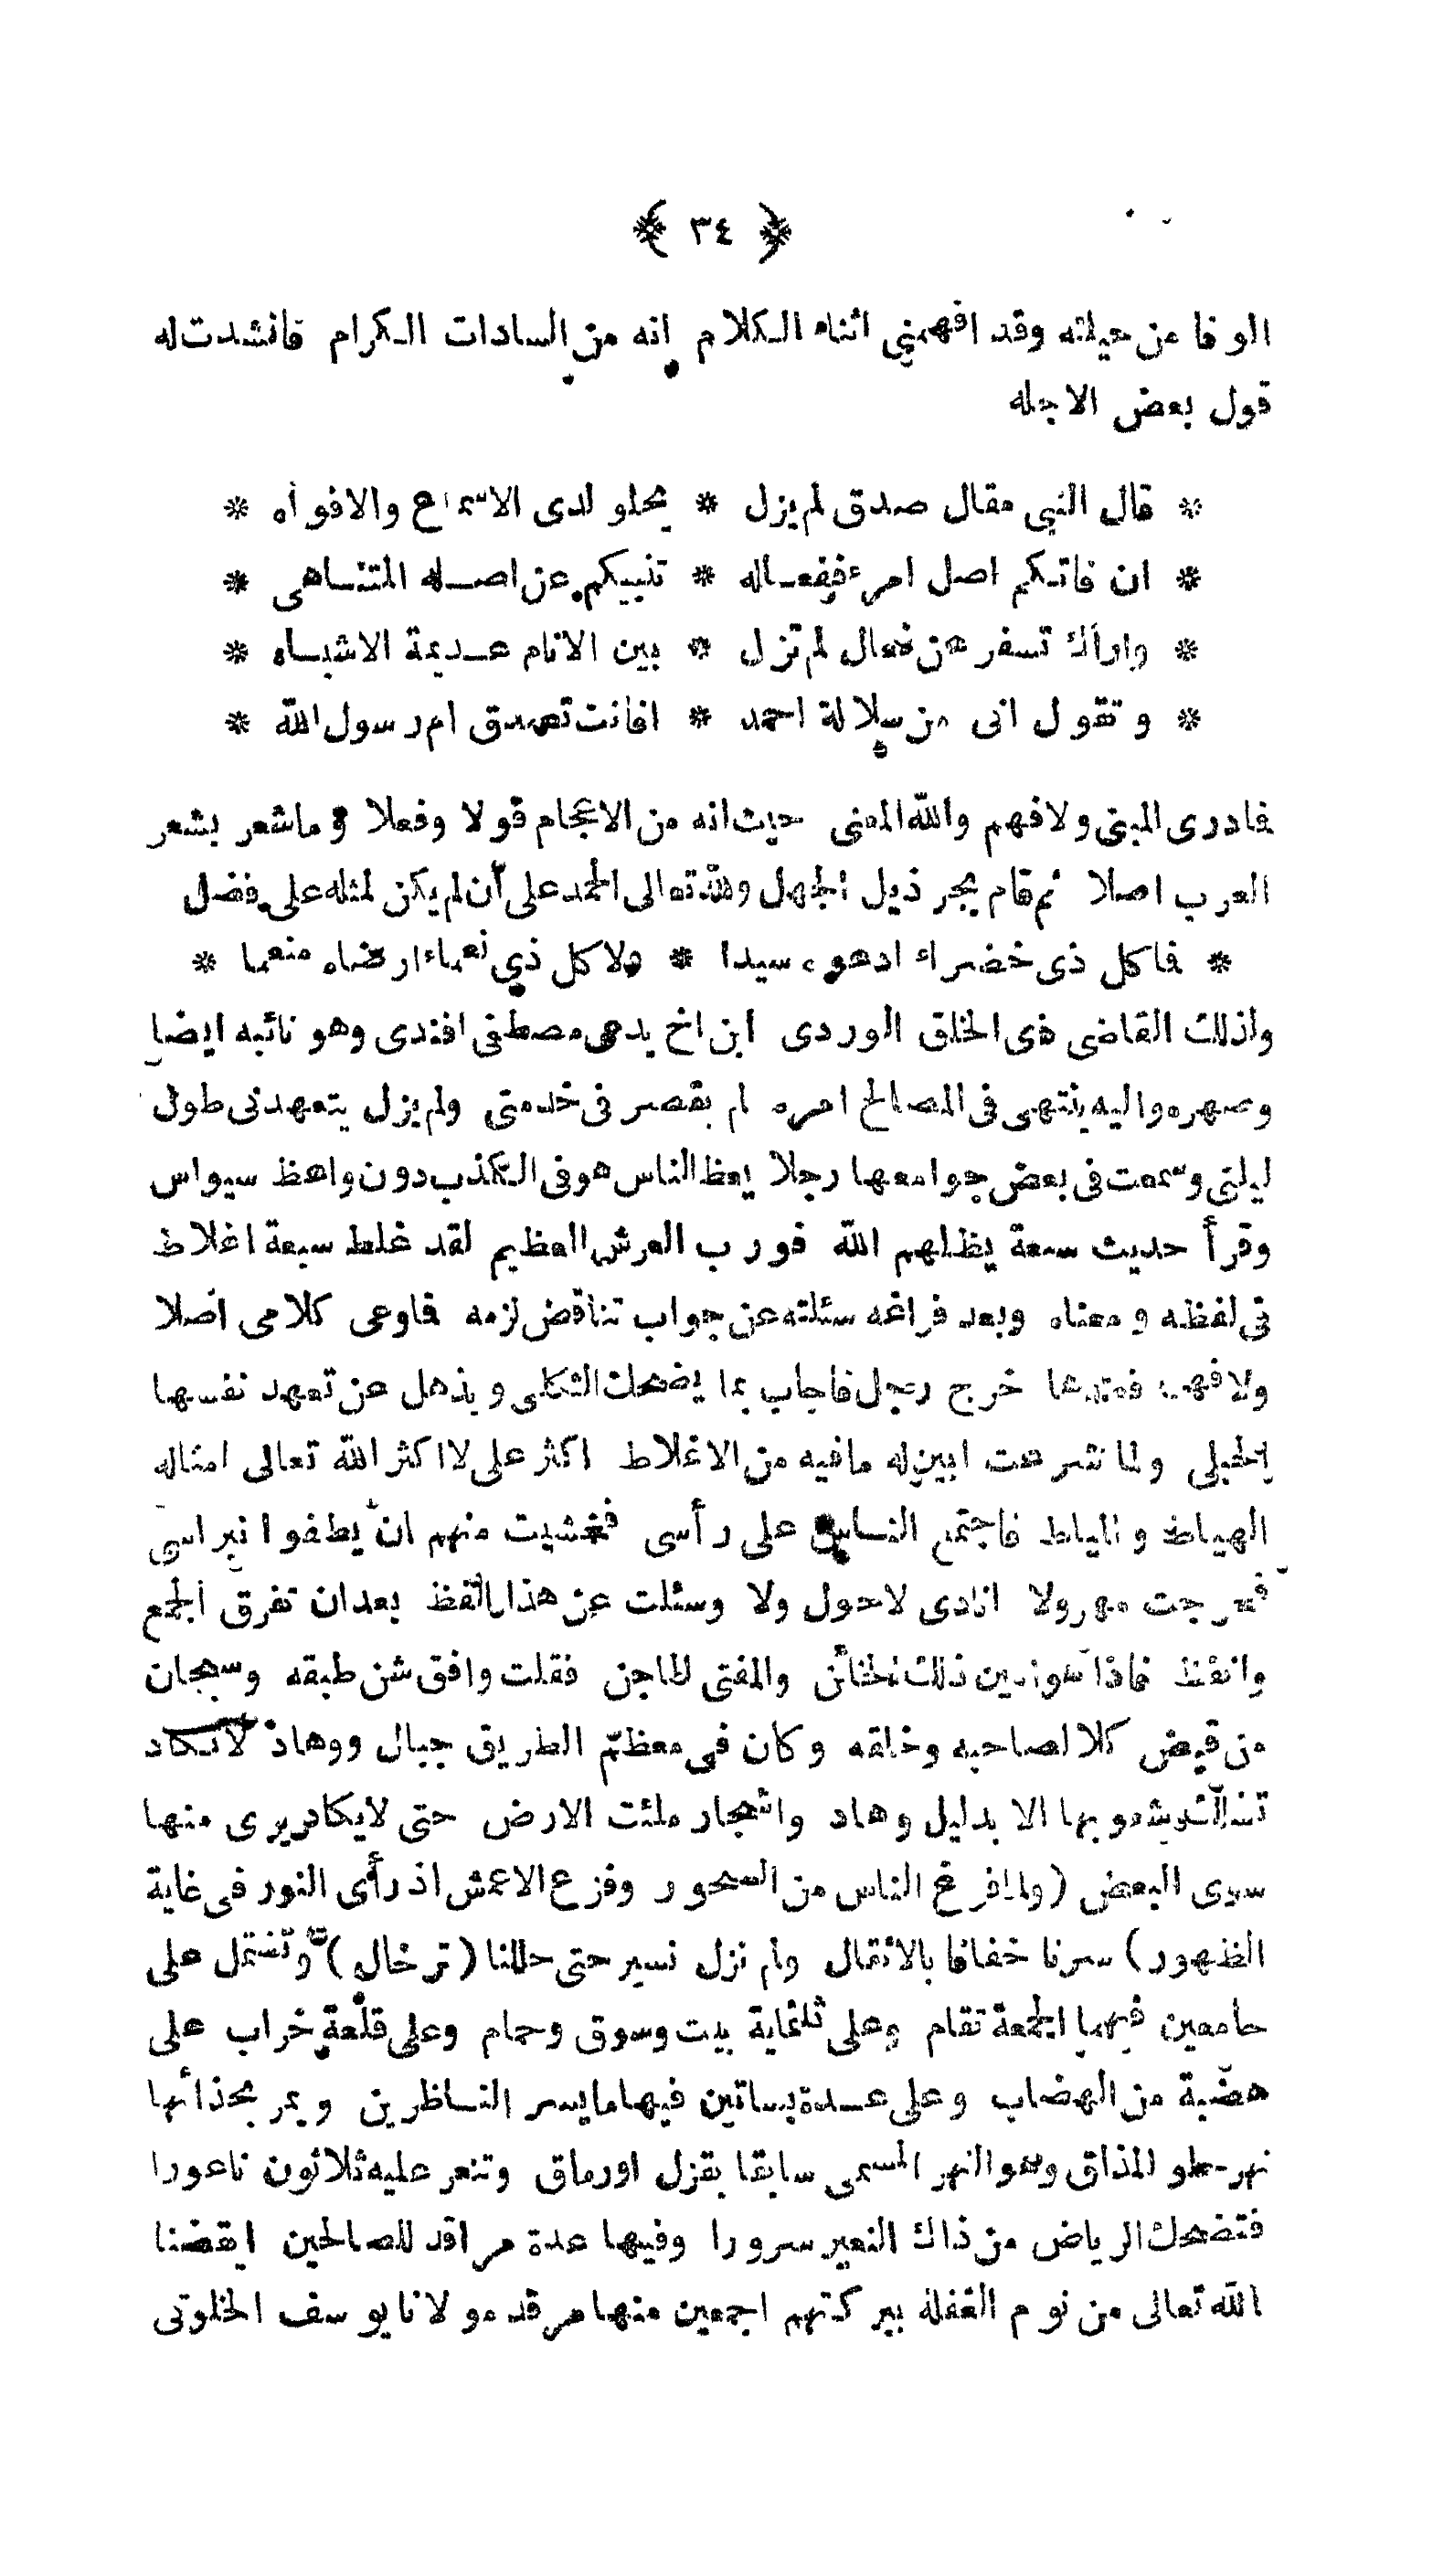 ﴿ ٣٤ ﴾
الوفا من حيلته وقد افهمني اثناء الكلام انه من السادات الكرام فانشدت له
قول بعض الاجله
* قال النبي مقال صدق لم يزل * يحلو لدى الاسماع والافواه *
* ان فاتكم اصل امرء ففعاله * تنبيكم عن اصله المتناهى *
* واراك تسفر عن فعال لم تزل * بين الانام عديمة الاشباه *
* وتقول انى من سلالة احمد * افانت تصدق ام رسول الله *
فادرى المبنى ولافهم والله المعنى حيث انه من الاعجام قولا وفعلا وما شعر بشعر
العرب اصلا ثم قام يجر ذيل الجهل ولله تعالى الحمد على أن لم يكن لمثله على فضل
* فاكل ذى خضراء ادعوه سيدا * ولاكل ذي نعماء ارضاه منعما *
ولذلك القاضى ذى الخلق الوردى ابن اخ يدعى مصطفى افندى وهو نائبه ايضا
وصهره واليه ينتهى فى المصالح امره لم يقصر فى خدمتى ولم يزل يتعهدنى طول
ليلتى وسمعت فى بعض جوامعها رجلا يعظ الناس هو فى الكذب دون واعظ سيواس
وقرأ حديث سبعة يظلهم الله فورب العرش العظيم لقد غلط سبعة اغلاط
فى لفظه ومعناه وبعد فراغه سئلته عن جواب تناقض لزمه فاوعى كلامى اصلا
ولافهمه فعندما خرج رجل فاجاب بما يضحك الثكلى ويذهل عن تعهد نفسها
الحبلى ولما شرعت ابين له مافيه من الاغلاط اكثر على لا اكثر الله تعالى امثاله
الهياط والمياط فاجتمع الناس على رأسى فخشيت منهم ان يطفوا نبراسى
فخرجت مهرولا انادى لاحول ولا وسئلت عن هذا الفظ بعد ان تفرق الجمع
وانفظ فماذا ذلك الخائن والمفتى الماجن فقلت وافق شن طبقه وسبحان
من قيض كلا لصاحبه وخلقه وكان فى معظم الطريق جبال ووهاد لاتكاد
بها الا بدليل وهاد واشجار ملئت الارض حتى لايكاد يرى منها
سوى البعض (ولما فرغ الناس من السحور وفزع الاعمش اذ رأى النور فى غاية
الظهور) سرنا خفافا بالاثقال ولم نزل نسير حتى حللنا (ترخال) وتشتمل على
جامعين فيهما الجمعة تقام وعلى ثلثماية بيت وسوق وحمام وعلى قلعة خراب على
هضبة من الهضاب وعلى عدة بساتين فيها مايسر الناظرين ويمر بحذائها
نهر حلو المذاق وهو النهر المسمى سابقا بقزل اورماق وتنعر عليه ثلاثون ناعورا
فتضحك الرياض من ذاك النعير سرورا وفيها عدة مراقد للصالحين ايقضنا
الله تعالى من نوم الغفلة ببركتهم اجمعين منها مرقد مولانا يوسف الخلوتى